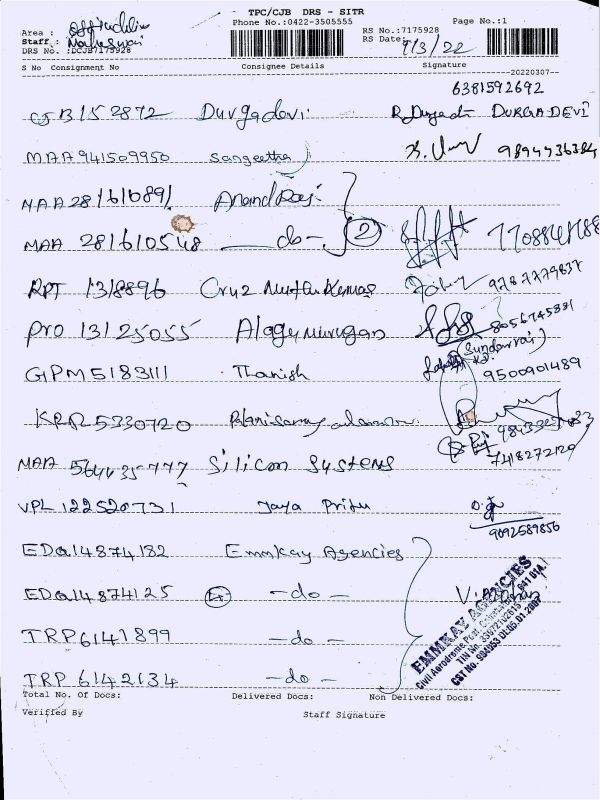 TPC/CJB DRS - SITR
Phone No.:0422-3505555
Page No.:1
Area :
RS No.:7175928
Staff : Maheswari
RS Date: 7/3/22
DRS No. :DCJB7175928
S No Consignment No Consignee Details Signature
20220307
6381592692
CJB152872 Durgadevi R. Durgadevi DURGADEVI
MAA 941509950 Sangeetha 9894436384
MAA 281616891 Anand Raj
MAA 281610548 — do — 2
RPT 1318896 Cruz Muthu Kumar 9787779837
PRO 13125055 Alagumurugan 8056745891
(Sundarraj)
GPM5183111 Thanish 9500901489
KRR 5330720 Palanisamy
7418272120
MAA 564435777 Silicon Systems
VPL 122520731 Jaya Pritu
9092589856
EDQ14874182 Emmkay Agencies
EDQ14874125 4 — do —
TRP6141899 — do —
TRP 6142134 — do —
EMMKAY AGENCIES
Civil Aerodrome Post, Coimbatore - 641 014.
Total No. Of Docs: Delivered Docs: Non Delivered Docs:
Veriffed By Staff Signature